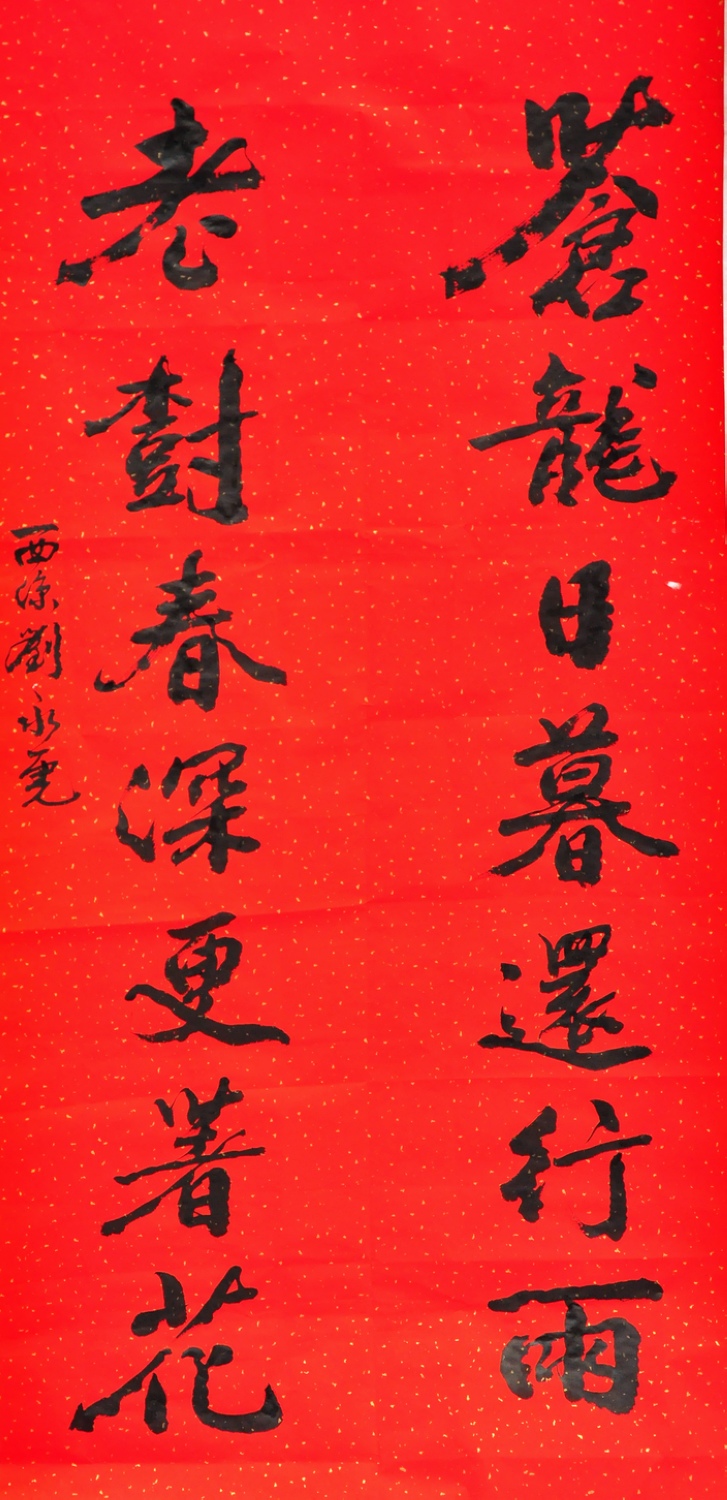 蒼龍日暮還行雨
老樹春深更著花
西涼劉永堯